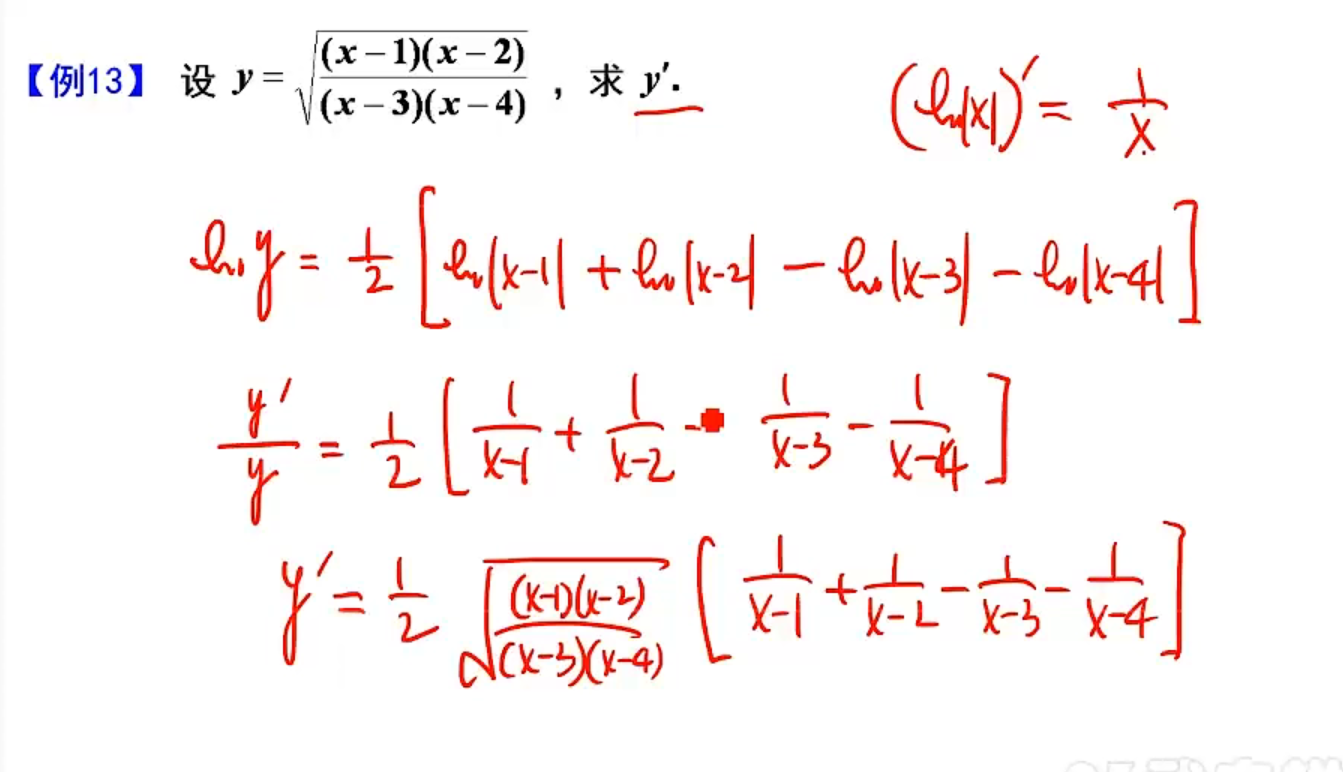 【例13】 设 y = √((x−1)(x−2)/((x−3)(x−4))) , 求 y′.
(ln|x|)′ = 1/x
ln y = 1/2 [ln|x-1| + ln|x-2| − ln|x-3| − ln|x-4|]
y′/y = 1/2 [1/(x-1) + 1/(x-2) - 1/(x-3) − 1/(x-4)]
y′ = 1/2 √((x-1)(x-2)/((x-3)(x-4))) [1/(x-1) + 1/(x-2) − 1/(x-3) − 1/(x-4)]